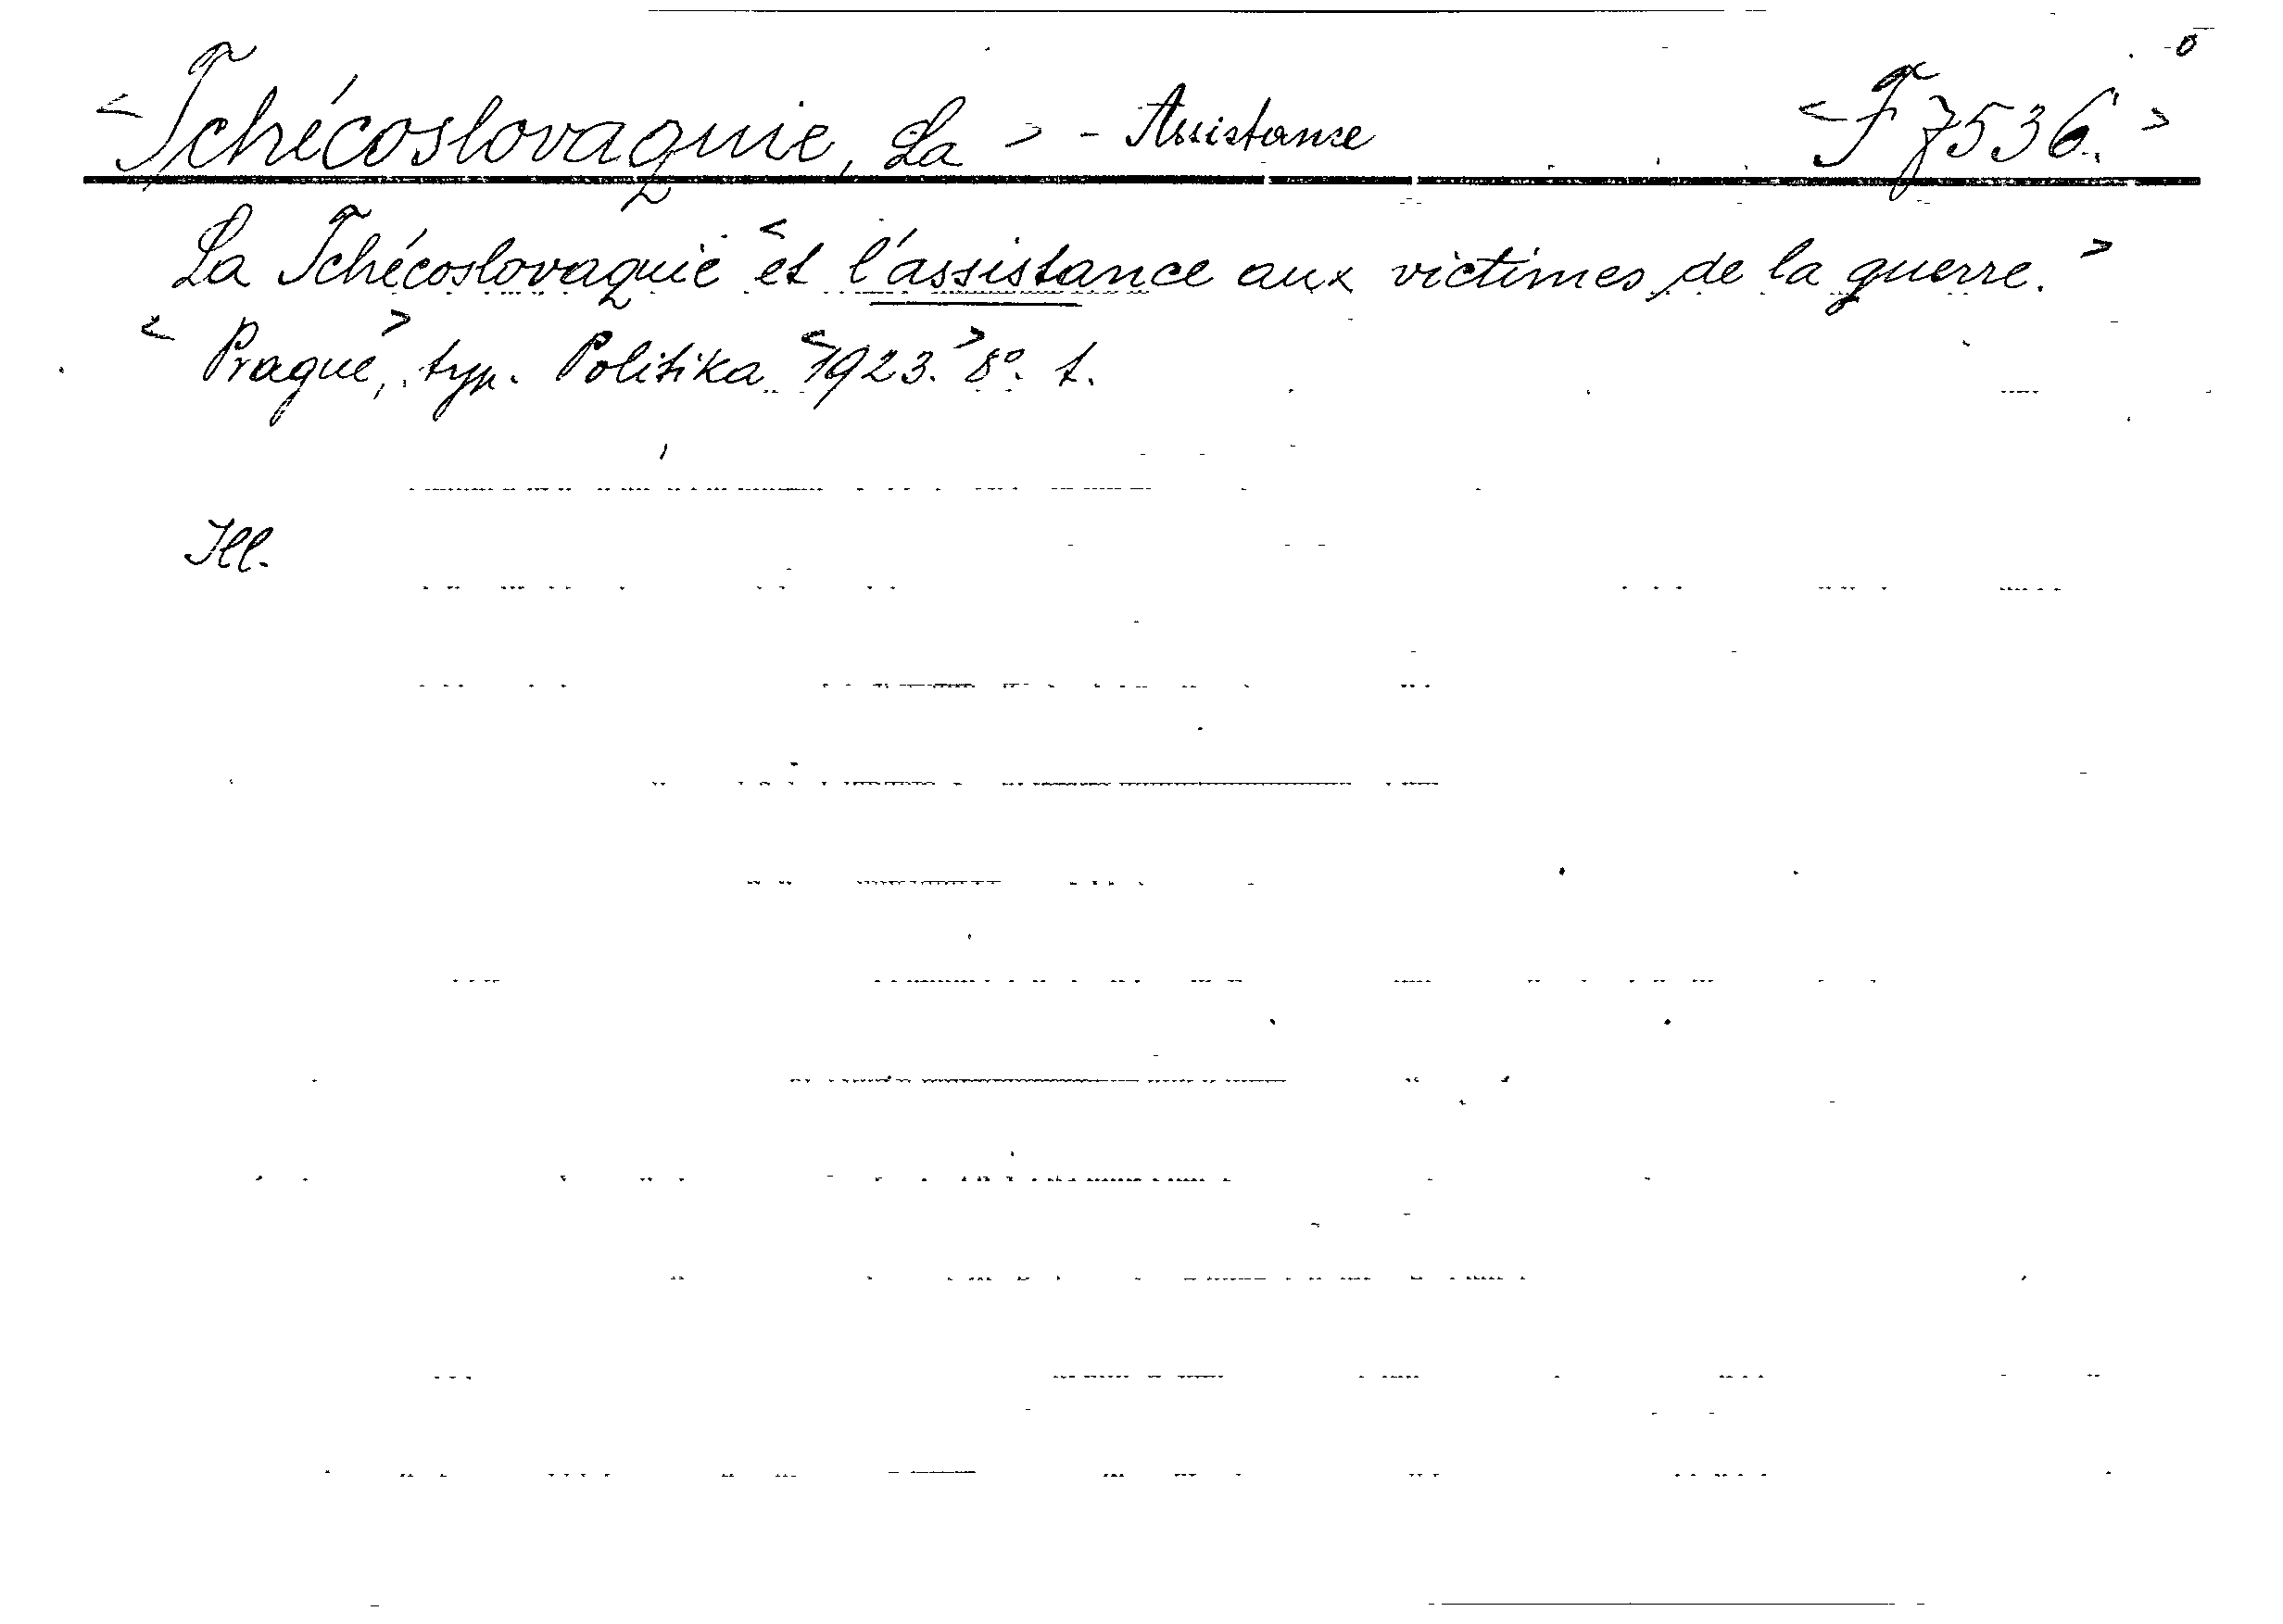 <Tchécoslovaquie, La> - Assistance <F 7536.>
La Tchécoslovaquie <et l'assistance aux victimes de la guerre.>
<Prague>, typ. Politika <1923.> 8°. t.
Ill.